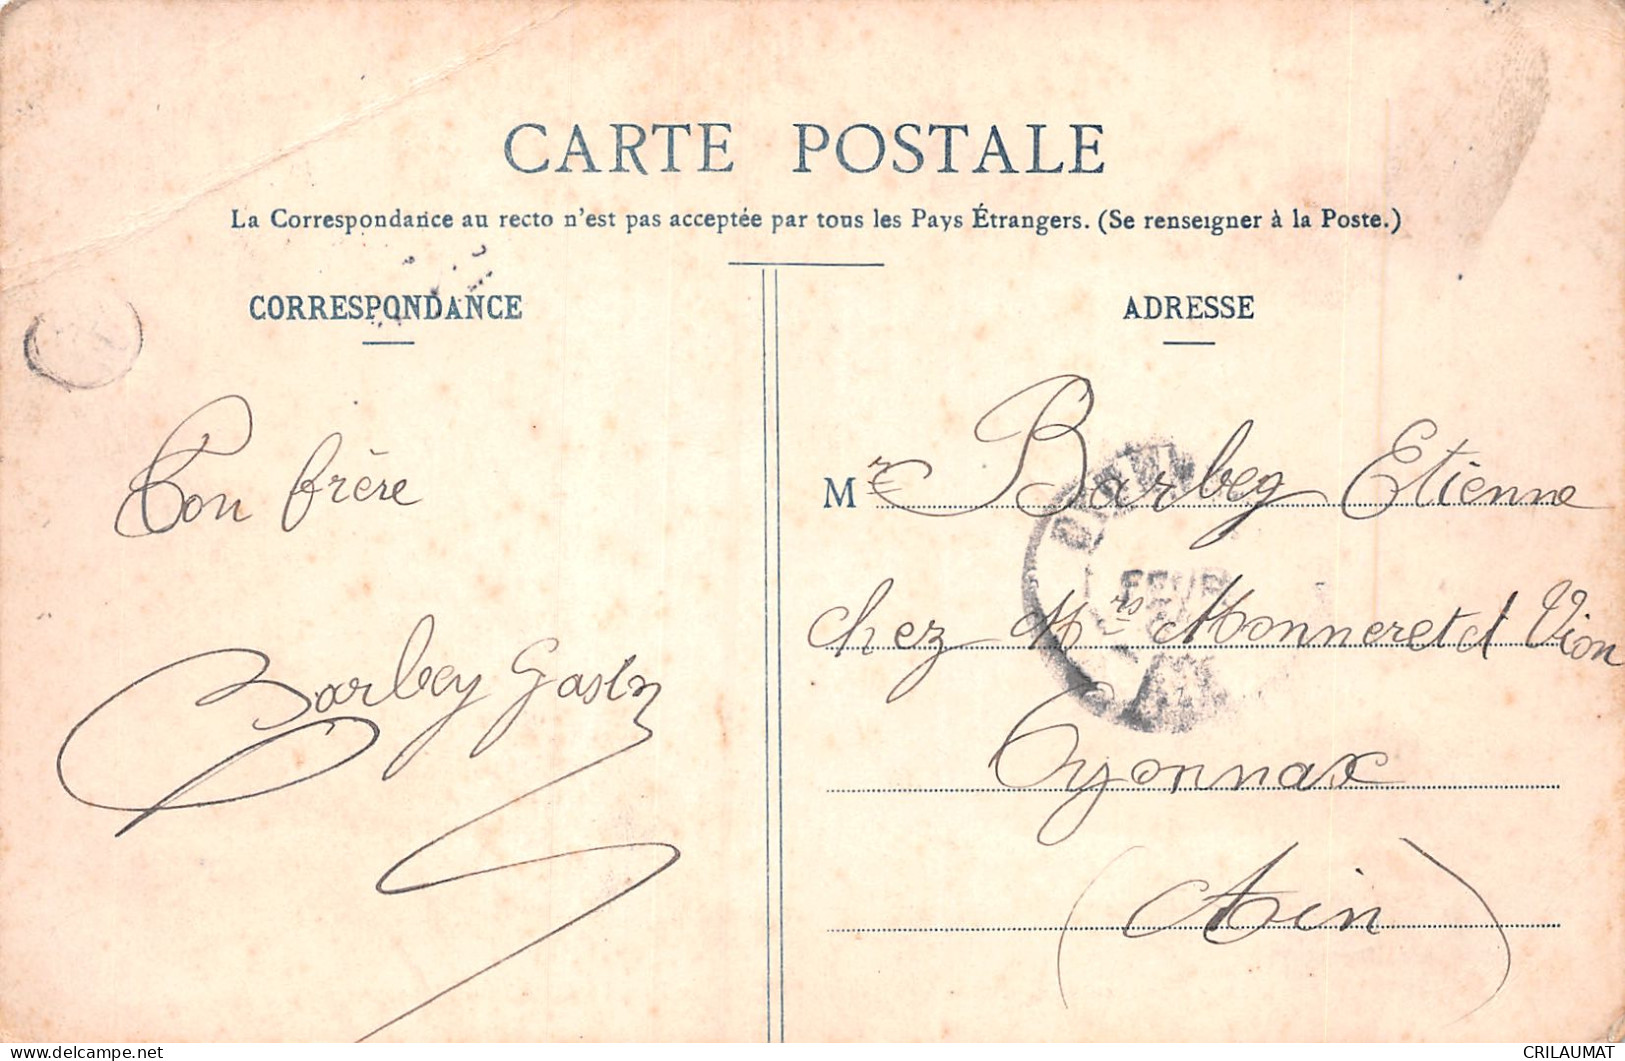 CARTE POSTALE
La Correspondance au recto n'est pas acceptée par tous les Pays Étrangers. (Se renseigner à la Poste.)
CORRESPONDANCE
Ton frère
Barbey Gaston
ADRESSE
Mr Barbey Etienne
chez Mrs Monneret d Vion
Oyonnax
(Ain)
FEVR
© delcampe.net
CRILAUMAT